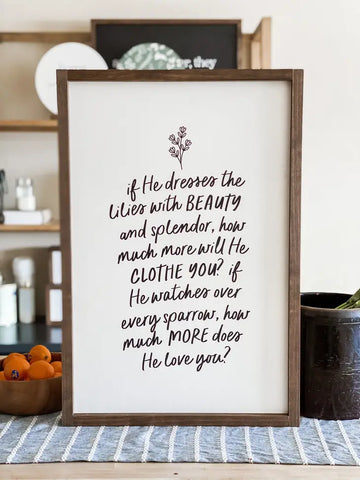 if He dresses the
lilies with BEAUTY
and splendor, how
much more will He
CLOTHE YOU? if
He watches over
every sparrow, how
much MORE does
He love you?
they